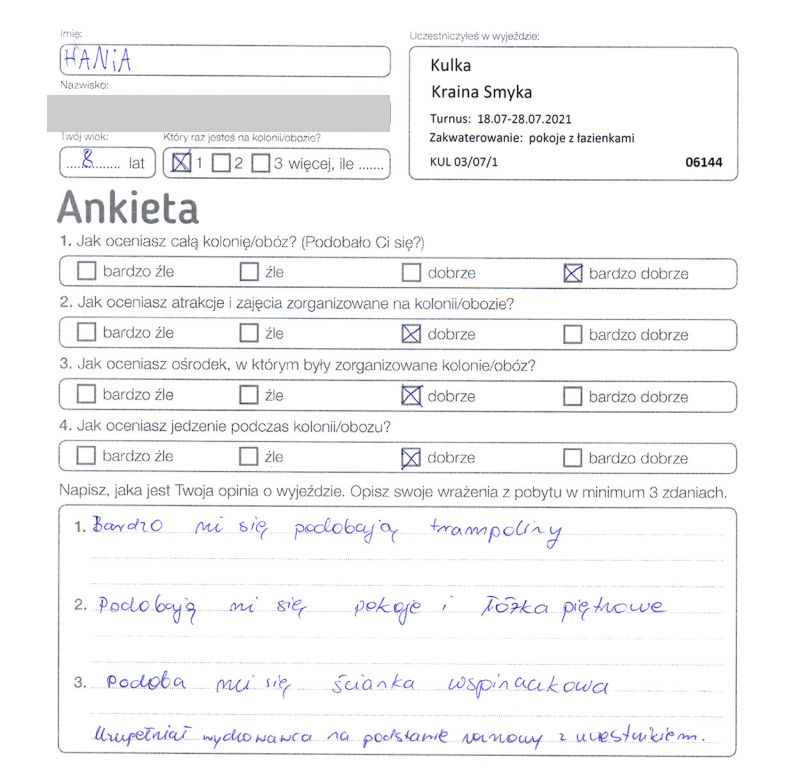 Imię:
HANiA
Uczestniczyłeś w wyjeździe:
Kulka
Kraina Smyka
Turnus: 18.07-28.07.2021
Zakwaterowanie: pokoje z łazienkami
KUL 03/07/1 06144
Nazwisko:
Twój wiek:
....8........ lat
Który raz jesteś na kolonii/obozie?
☒ 1 ☐ 2 ☐ 3 więcej, ile .......
Ankieta
1. Jak oceniasz całą kolonię/obóz? (Podobało Ci się?)
☐ bardzo źle ☐ źle ☐ dobrze ☒ bardzo dobrze
2. Jak oceniasz atrakcje i zajęcia zorganizowane na kolonii/obozie?
☐ bardzo źle ☐ źle ☒ dobrze ☐ bardzo dobrze
3. Jak oceniasz ośrodek, w którym były zorganizowane kolonie/obóz?
☐ bardzo źle ☐ źle ☒ dobrze ☐ bardzo dobrze
4. Jak oceniasz jedzenie podczas kolonii/obozu?
☐ bardzo źle ☐ źle ☒ dobrze ☐ bardzo dobrze
Napisz, jaka jest Twoja opinia o wyjeździe. Opisz swoje wrażenia z pobytu w minimum 3 zdaniach.
1. Bardzo mi się podobają trampoliny
2. Podobają mi się pokoje i łóżka piętrowe
3. Podoba mi się ścianka wspinaczkowa
Uzupełniał wychowawca na podstawie rozmowy z uczestnikiem.